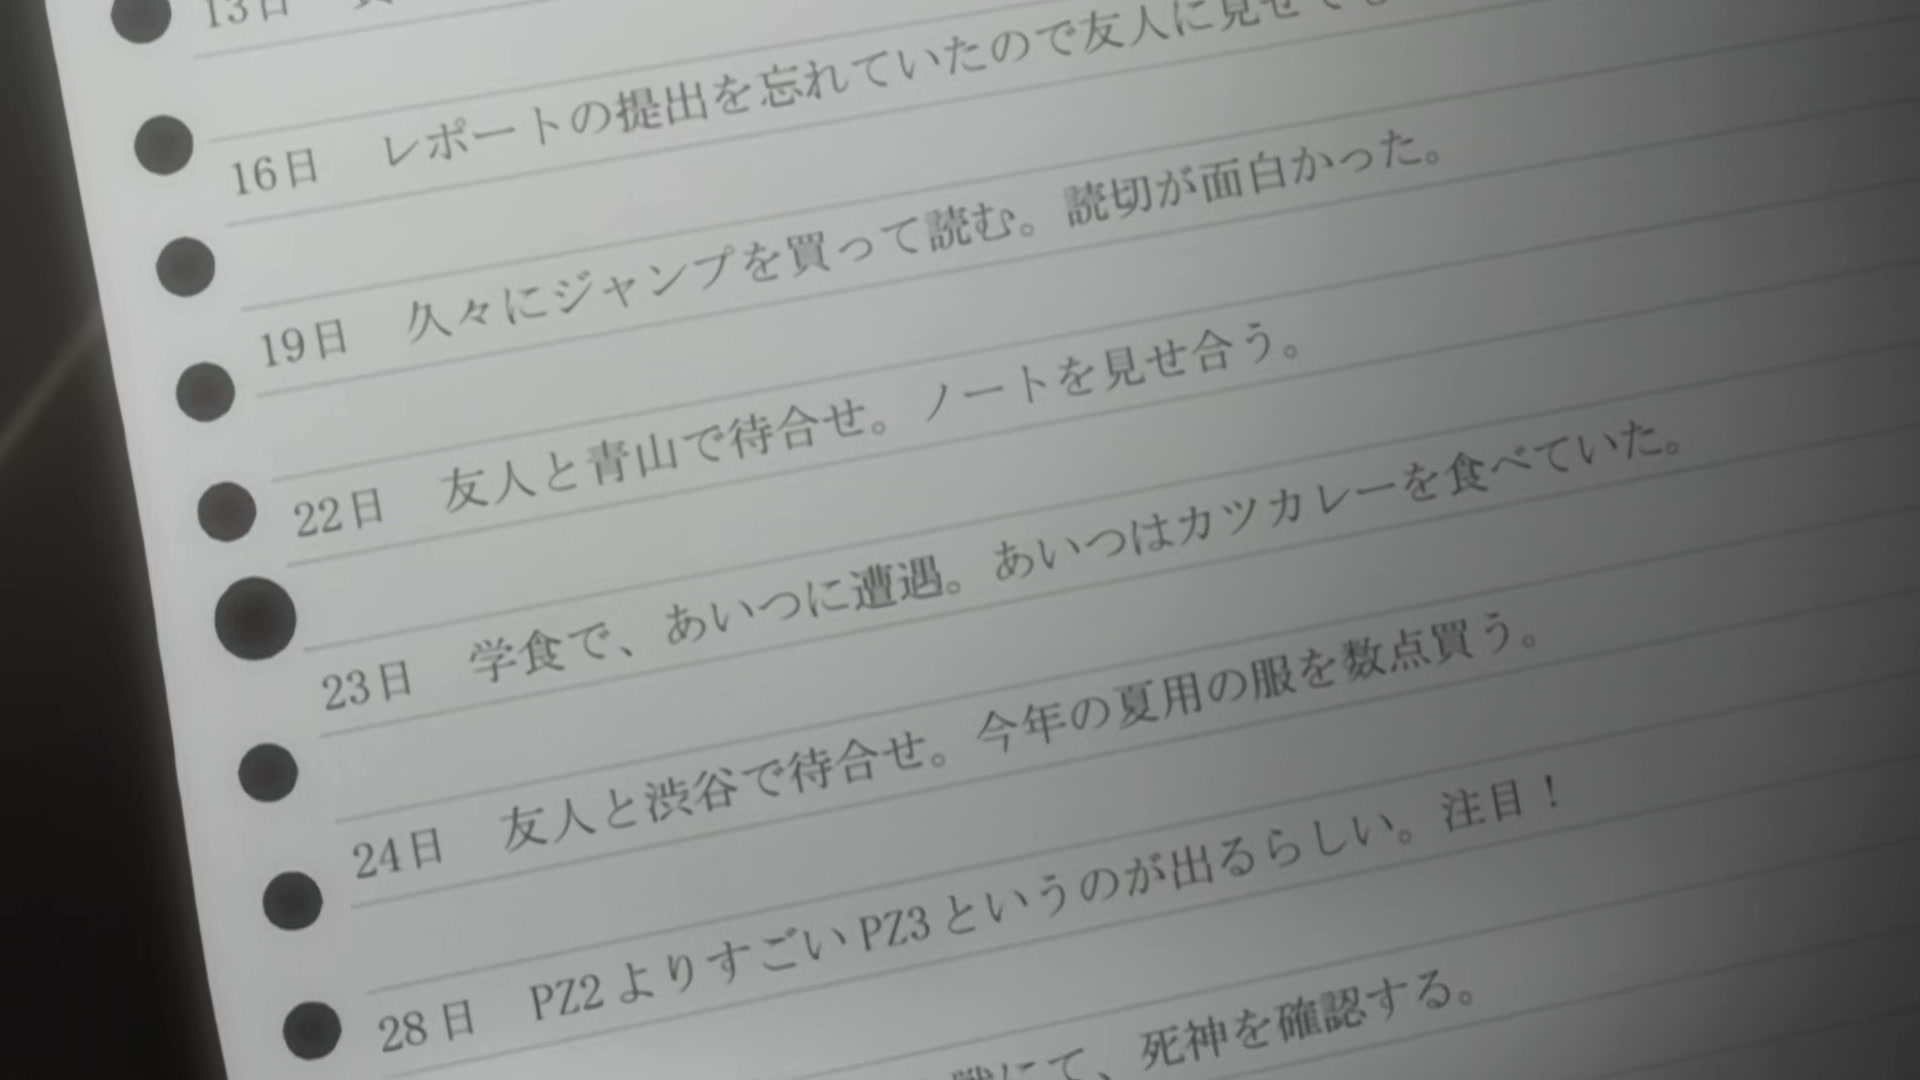 13日
16日　レポートの提出を忘れていたので友人に見せても
19日　久々にジャンプを買って読む。読切が面白かった。
22日　友人と青山で待合せ。ノートを見せ合う。
23日　学食で、あいつに遭遇。あいつはカツカレーを食べていた。
24日　友人と渋谷で待合せ。今年の夏用の服を数点買う。
28日　PZ2よりすごいPZ3というのが出るらしい。注目！
戦にて、死神を確認する。